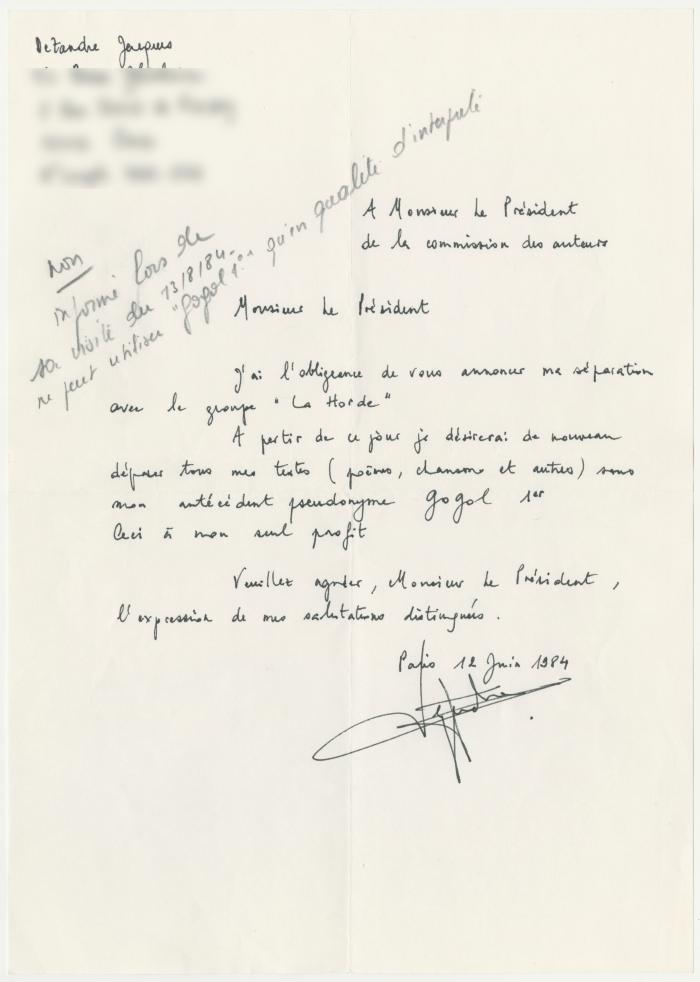 Dezandre Jacques
A Monsieur Le Président
de la commission des auteurs
non
informé lors de
sa visite du 13/8/84.
ne peut utiliser "Gogol 1er" qu'en qualité d'interprète
Monsieur Le Président
J'ai l'obligeance de vous annoncer ma séparation
avec le groupe "La Horde"
A partir de ce jour je désirerai de nouveau
déposer tous mes textes (poèmes, chansons et autres) sous
mon antécédent pseudonyme Gogol 1er
Ceci à mon seul profit
Veuillez agréer, Monsieur Le Président,
l'expression de mes salutations distingués.
Paris 12 Juin 1984